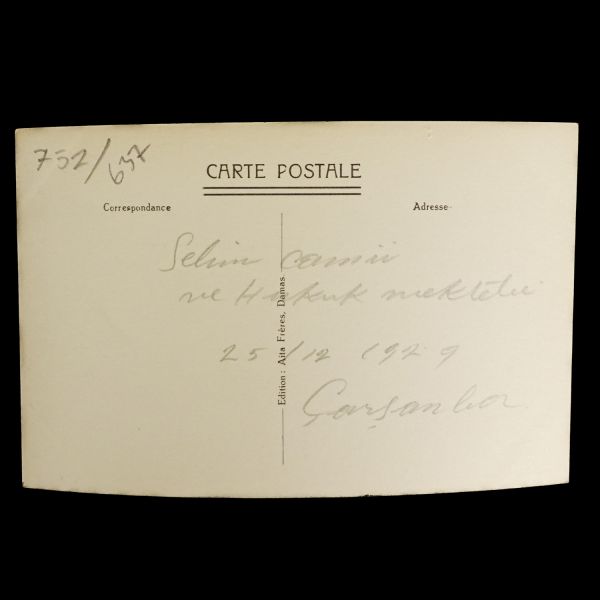 752/657
CARTE POSTALE
Correspondance
Adresse
Selim camii
ve Hukuk mektebi
25/12 1929
Çarşanba
Edition: Aita Frères, Damas.